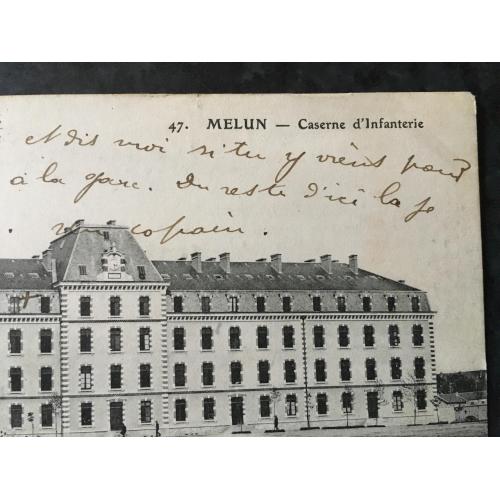 47. MELUN — Caserne d'Infanterie
et dis moi si tu y viens
à la gare. Du reste d'ici là je
copain.